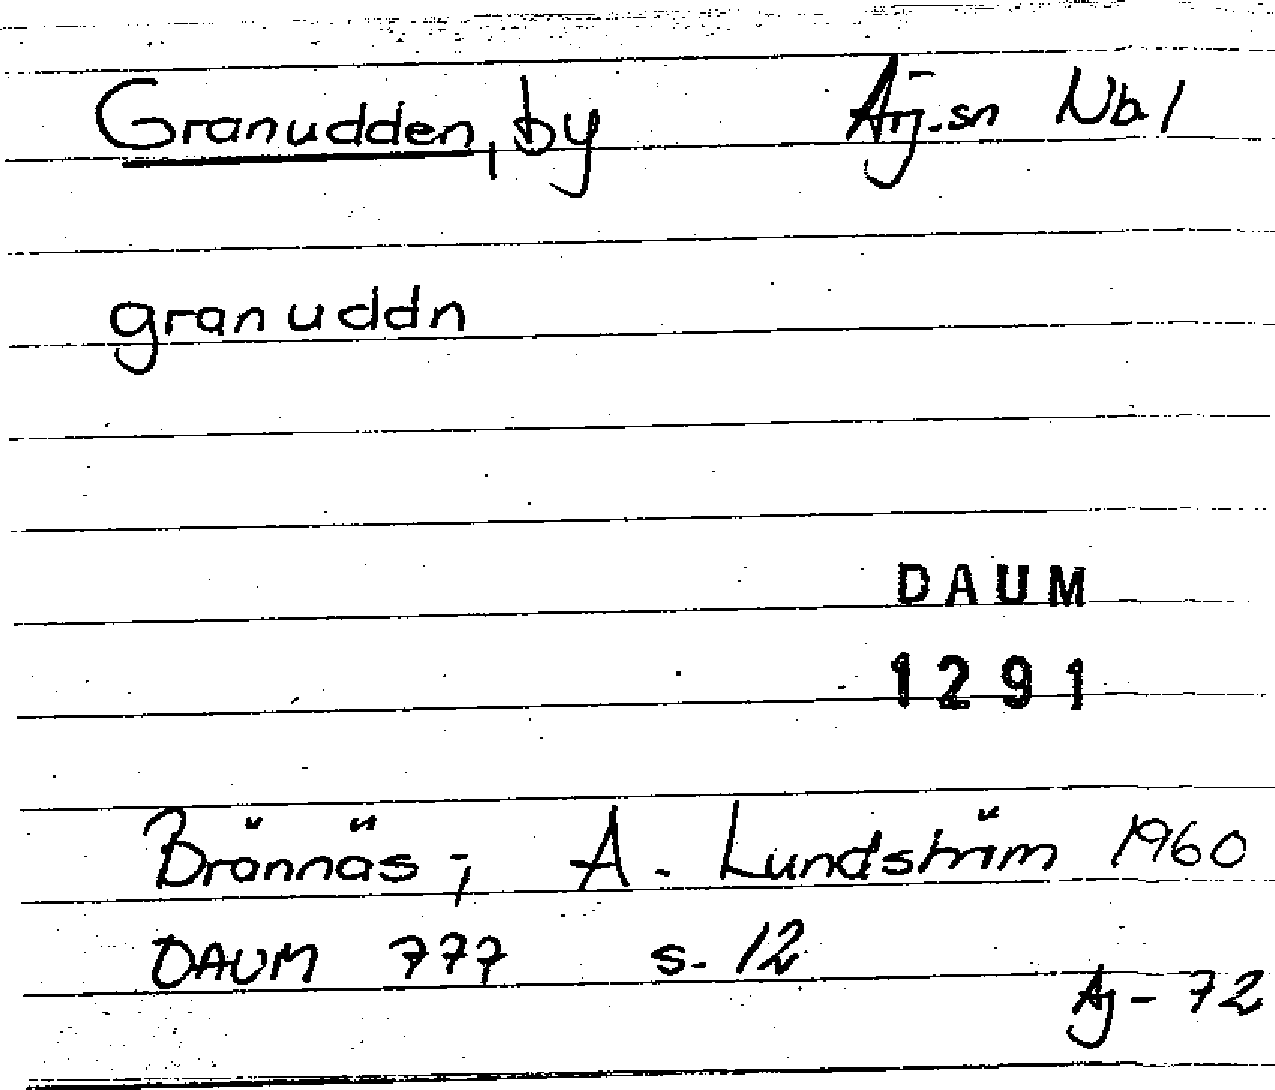 Granudden, by Arj.sn Nb l
granuddn
DAUM
1291
Brännäs; A. Lundström 1960
DAUM 777 s. 12
Aj-72